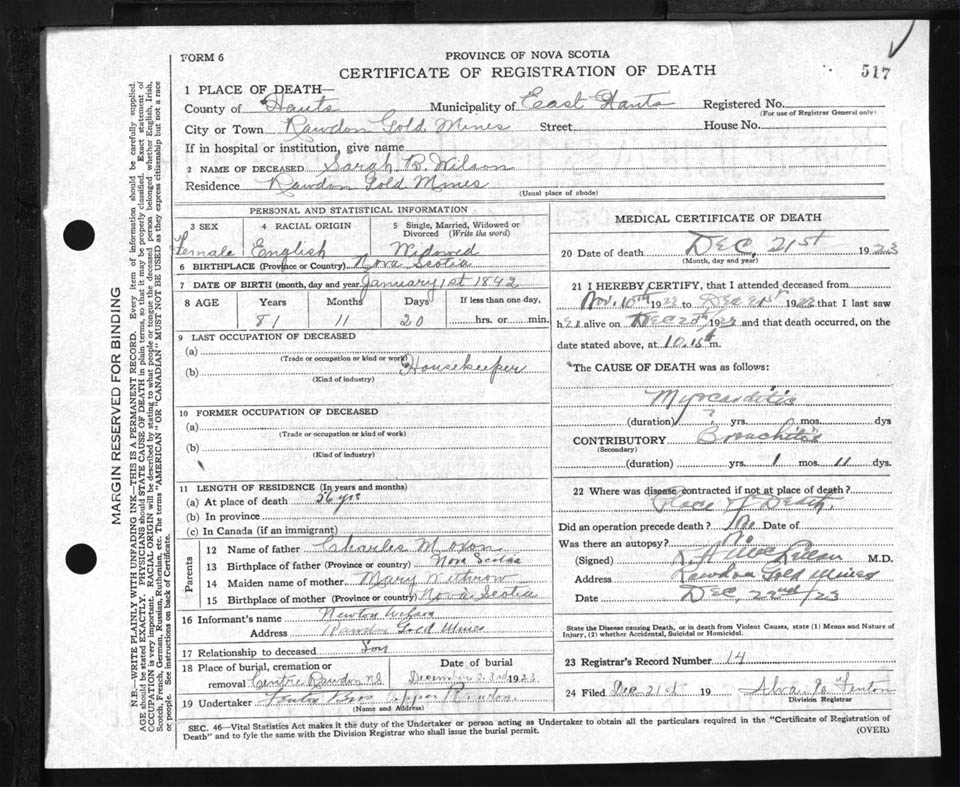 FORM 6
PROVINCE OF NOVA SCOTIA
CERTIFICATE OF REGISTRATION OF DEATH
517
1 PLACE OF DEATH—
County of Hants Municipality of East Hants Registered No.
(For use of Registrar General only)
City or Town Rawdon Gold Mines Street House No.
If in hospital or institution, give name
2 NAME OF DECEASED Sarah B. Wilson
Residence Rawdon Gold Mines
(Usual place of abode)
PERSONAL AND STATISTICAL INFORMATION
3 SEX 4 RACIAL ORIGIN 5 Single, Married, Widowed or Divorced (Write the word)
Female English Widowed
6 BIRTHPLACE (Province or Country) Nova Scotia
7 DATE OF BIRTH (month, day and year) January 1st 1842
8 AGE Years Months Days If less than one day,
81 11 20 hrs. or min.
9 LAST OCCUPATION OF DECEASED
(a)
(Trade or occupation or kind of work)
(b) Housekeeper
(Kind of industry)
10 FORMER OCCUPATION OF DECEASED
(a)
(Trade or occupation or kind of work)
(b)
(Kind of industry)
11 LENGTH OF RESIDENCE (In years and months)
(a) At place of death 56 yrs
(b) In province
(c) In Canada (if an immigrant)
Parents
12 Name of father Charles Moxon
13 Birthplace of father (Province or country) Nova Scotia
14 Maiden name of mother Mary
15 Birthplace of mother (Province or country) Nova Scotia
16 Informant's name Newton Wilson
Address Rawdon Gold Mines
17 Relationship to deceased Son
18 Place of burial, cremation or removal Centre Rawdon N.S. Date of burial December 23rd 1923
19 Undertaker Bros Upper Rawdon
(Name and Address)
MEDICAL CERTIFICATE OF DEATH
20 Date of death DEC, 21st 1923
(Month, day and year)
21 I HEREBY CERTIFY, that I attended deceased from
Nov. 10th 1923 to Dec 21st 1923 that I last saw
her alive on 1923 and that death occurred, on the
date stated above, at 10.15 m.
The CAUSE OF DEATH was as follows:
Myocarditis
(duration) ? yrs. mos. dys
CONTRIBUTORY Bronchitis
(Secondary)
(duration) yrs. 1 mos. 11 dys.
22 Where was disease contracted if not at place of death?
Place of Death
Did an operation precede death? No Date of
Was there an autopsy? No
(Signed) M.D.
Address Rawdon Gold Mines
Date DEC, 22nd/23
State the Disease causing Death, or in death from Violent Causes, state (1) Means and Nature of Injury, (2) whether Accidental, Suicidal or Homicidal.
23 Registrar's Record Number 14
24 Filed Dec 21st 19 Alva Fenton
Division Registrar
SEC. 46—Vital Statistics Act makes it the duty of the Undertaker or person acting as Undertaker to obtain all the particulars required in the "Certificate of Registration of
Death" and to fyle the same with the Division Registrar who shall issue the burial permit.
(OVER)
MARGIN RESERVED FOR BINDING
N.B.—WRITE PLAINLY WITH UNFADING INK—THIS IS A PERMANENT RECORD. Every item of information should be carefully supplied.
AGE should be stated EXACTLY. PHYSICIANS should STATE CAUSE OF DEATH in plain terms, so that it may be properly classified. Exact statement of
OCCUPATION is very important. RACIAL ORIGIN will be described by stating to what people or tongue the deceased person belonged whether English, Irish,
Scotch, French, German, Russian, Ruthenian, etc. The terms "AMERICAN" OR "CANADIAN" MUST NOT BE USED as they express citizenship but not a race
or people. See instructions on back of Certificate.